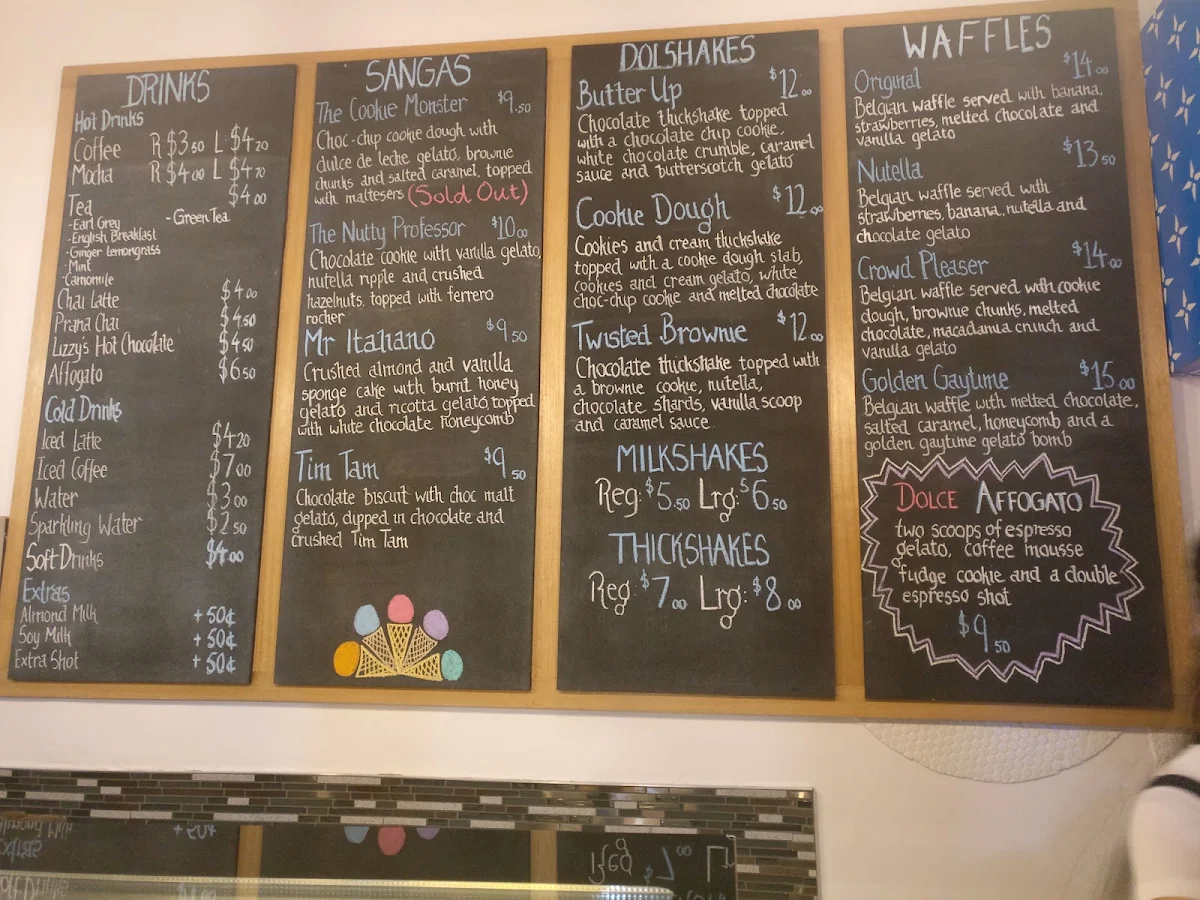 DRINKS
Hot Drinks
Coffee R $3.50 L $4.20
Mocha R $4.00 L $4.70
Tea $4.00
-Earl Grey -Green Tea
-English Breakfast
-Ginger Lemongrass
-Mint
-Camomile
Chai Latte $4.00
Prana Chai $4.50
Lizzy's Hot Chocolate $4.50
Affogato $6.50
Cold Drinks
Iced Latte $4.20
Iced Coffee $7.00
Water $3.00
Sparkling Water $2.50
Soft Drinks $4.00
Extras
Almond Milk +50¢
Soy Milk +50¢
Extra Shot +50¢
SANGAS
The Cookie Monster $9.50
Choc-chip cookie dough with
dulce de leche gelato, brownie
chunks and salted caramel, topped
with maltesers (Sold Out)
The Nutty Professor $10.00
Chocolate cookie with vanilla gelato,
nutella ripple and crushed
hazelnuts, topped with ferrero
rocher
Mr Italiano $9.50
Crushed almond and vanilla
sponge cake with burnt honey
gelato and ricotta gelato, topped
with white chocolate honeycomb
Tim Tam $9.50
Chocolate biscuit with choc malt
gelato, dipped in chocolate and
crushed Tim Tam
DOLSHAKES
Butter Up $12.00
Chocolate thickshake topped
with a chocolate chip cookie,
white chocolate crumble, caramel
sauce and butterscotch gelato
Cookie Dough $12.00
Cookies and cream thickshake
topped with a cookie dough slab,
cookies and cream gelato, white
choc-chip cookie and melted chocolate
Twisted Brownie $12.00
Chocolate thickshake topped with
a brownie cookie, nutella,
chocolate shards, vanilla scoop
and caramel sauce
MILKSHAKES
Reg: $5.50 Lrg: $6.50
THICKSHAKES
Reg: $7.00 Lrg: $8.00
WAFFLES
Original $14.00
Belgian waffle served with banana,
strawberries, melted chocolate and
vanilla gelato
Nutella $13.50
Belgian waffle served with
strawberries, banana, nutella and
chocolate gelato
Crowd Pleaser $14.00
Belgian waffle served with cookie
dough, brownie chunks, melted
chocolate, macadamia crunch and
vanilla gelato
Golden Gaytime $15.00
Belgian waffle with melted chocolate,
salted caramel, honeycomb and a
golden gaytime gelato bomb
DOLCE AFFOGATO
two scoops of espresso
gelato, coffee mousse
fudge cookie and a double
espresso shot
$9.50